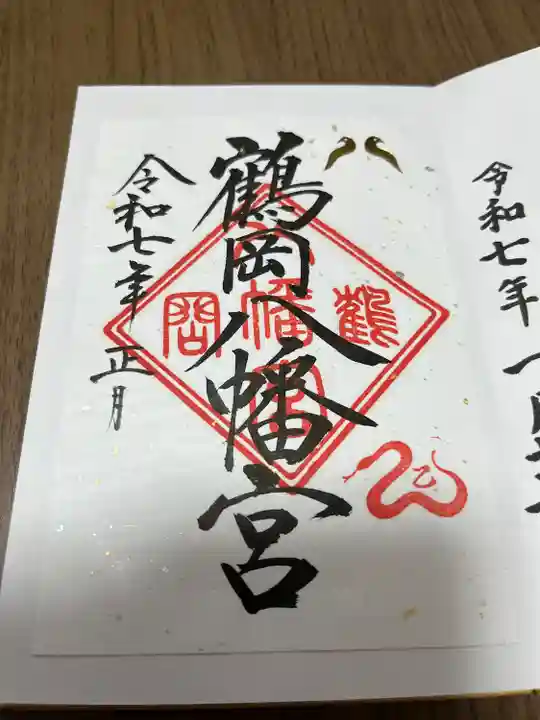 令和七年 一月
鶴岡八幡宮
鶴
岡
八幡宮
巳
令和七年 正月